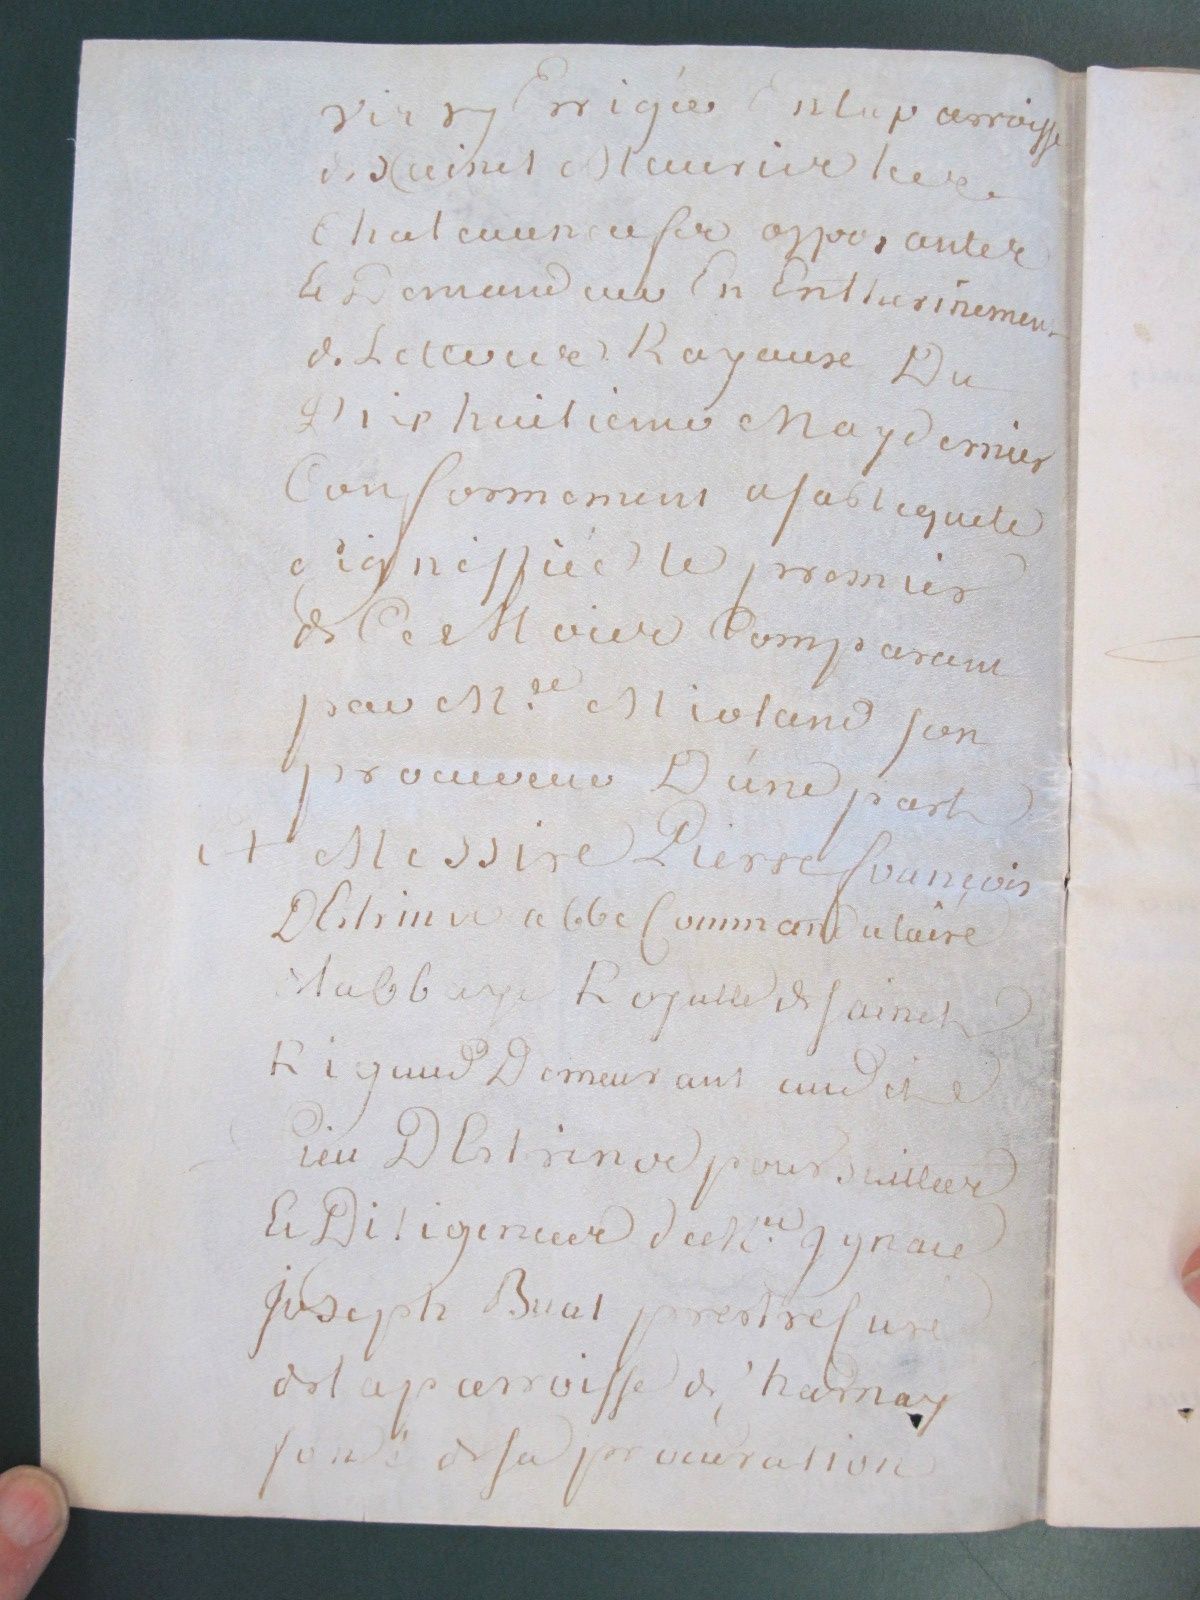 virey Errigée En la parroisse
de Sainct Maurice lez
Chateauneuf opposante
Et Demand eur En Entherinement
de Lettres Royaux Du
Dix huitieme May dernier
Conformement a sa Requete
signiffiée le premier
de Ce Mois Comparant
par Mre. Mioland son
procureur D'une part
Et Messire Pierre françois
DEstrinve abbe Commandataire
de labbaye Royalle de sainct
Rigaud Demeurant audit
Lieu DEstrinve poursuittes
Et Diligences de Mre. Ignace
joseph Buat prestre Curé
de la parroisse de Charnay
fondé de sa procuration